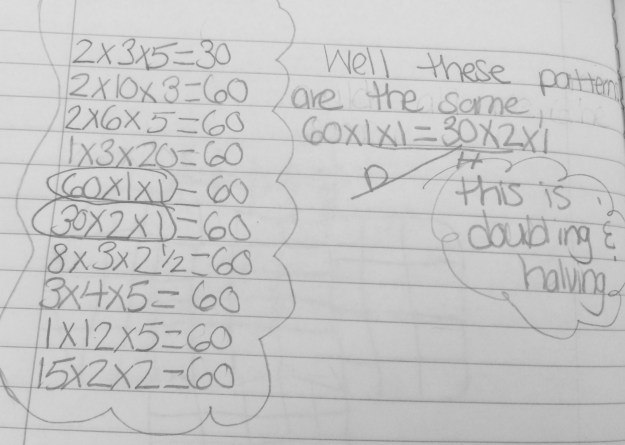 2x3x5=30
2x10x3=60
2x6x5=60
1x3x20=60
60x1x1=60
30x2x1=60
8x3x2½=60
3x4x5=60
1x12x5=60
15x2x2=60
Well these pattern
are the same
60x1x1=30x2x1
D H
this is
doubling &
halving